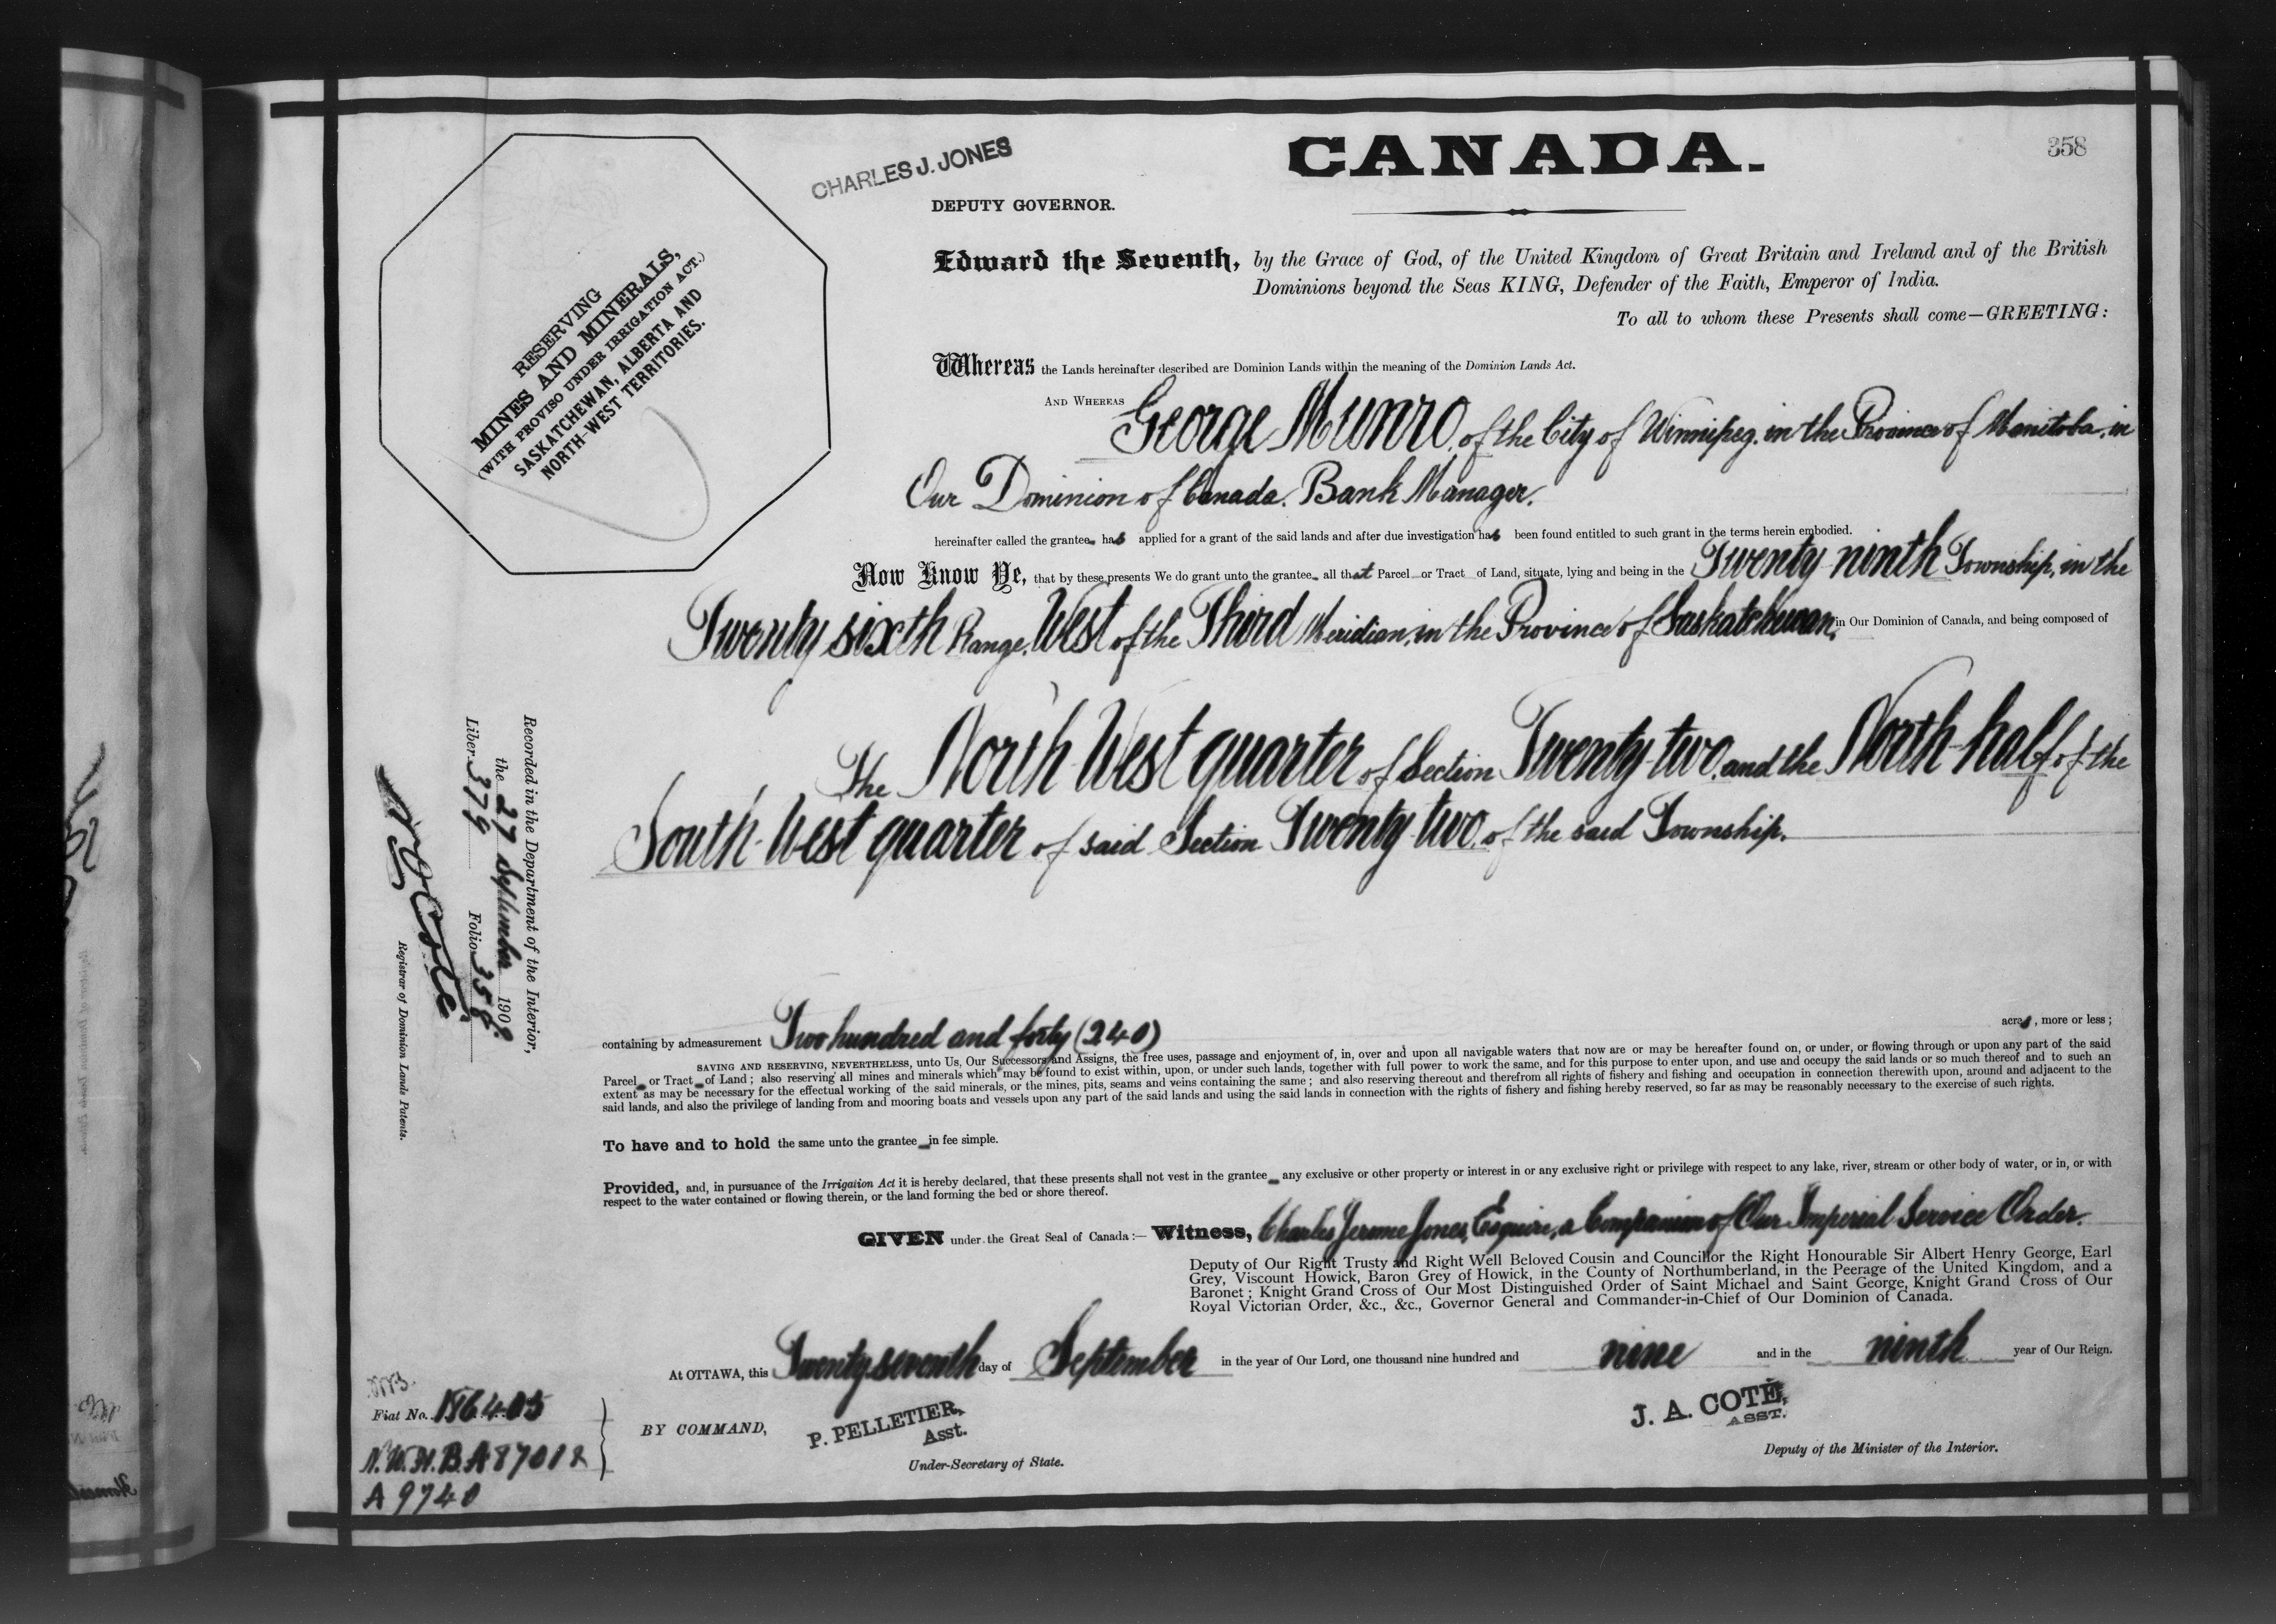 358
CANADA.
CHARLES J. JONES
DEPUTY GOVERNOR.
RESERVING
MINES AND MINERALS,
(WITH PROVISO UNDER IRRIGATION ACT.)
SASKATCHEWAN, ALBERTA AND
NORTH-WEST TERRITORIES.
Edward the Seventh, by the Grace of God, of the United Kingdom of Great Britain and Ireland and of the British
Dominions beyond the Seas KING, Defender of the Faith, Emperor of India.
To all to whom these Presents shall come—GREETING:
Whereas the Lands hereinafter described are Dominion Lands within the meaning of the Dominion Lands Act.
AND WHEREAS George Munro, of the City of Winnipeg, in the Province of Manitoba, in
Our Dominion of Canada. Bank Manager.
hereinafter called the grantee has applied for a grant of the said lands and after due investigation has been found entitled to such grant in the terms herein embodied.
Now Know Ye, that by these presents We do grant unto the grantee all that Parcel or Tract of Land, situate, lying and being in the Twenty ninth Township, in the
Twenty sixth Range, West of the Third Meridian, in the Province of Saskatchewan, in Our Dominion of Canada, and being composed of
The North West quarter of Section Twenty-two, and the North-half of the
South-West quarter of said Section Twenty two, of the said Township.
Recorded in the Department of the Interior,
the 27 September 1909.
Liber 379 Folio 358.
Registrar of Dominion Lands Patents.
containing by admeasurement Two hundred and forty (240) acres, more or less;
SAVING AND RESERVING, NEVERTHELESS, unto Us, Our Successors and Assigns, the free uses, passage and enjoyment of, in, over and upon all navigable waters that now are or may be hereafter found on, or under, or flowing through or upon any part of the said
Parcel or Tract of Land; also reserving all mines and minerals which may be found to exist within, upon, or under such lands, together with full power to work the same, and for this purpose to enter upon, and use and occupy the said lands or so much thereof and to such an
extent as may be necessary for the effectual working of the said minerals, or the mines, pits, seams and veins containing the same; and also reserving thereout and therefrom all rights of fishery and fishing and occupation in connection therewith upon, around and adjacent to the
said lands, and also the privilege of landing from and mooring boats and vessels upon any part of the said lands and using the said lands in connection with the rights of fishery and fishing hereby reserved, so far as may be reasonably necessary to the exercise of such rights.
To have and to hold the same unto the grantee in fee simple.
Provided, and, in pursuance of the Irrigation Act it is hereby declared, that these presents shall not vest in the grantee any exclusive or other property or interest in or any exclusive right or privilege with respect to any lake, river, stream or other body of water, or in, or with
respect to the water contained or flowing therein, or the land forming the bed or shore thereof.
GIVEN under the Great Seal of Canada:— Witness, Charles Jerome Jones, Esquire, a Companion of Our Imperial Service Order.
Deputy of Our Right Trusty and Right Well Beloved Cousin and Councillor the Right Honourable Sir Albert Henry George, Earl
Grey, Viscount Howick, Baron Grey of Howick, in the County of Northumberland, in the Peerage of the United Kingdom, and a
Baronet; Knight Grand Cross of Our Most Distinguished Order of Saint Michael and Saint George, Knight Grand Cross of Our
Royal Victorian Order, &c., &c., Governor General and Commander-in-Chief of Our Dominion of Canada.
At OTTAWA, this Twenty seventh day of September in the year of Our Lord, one thousand nine hundred and nine and in the ninth year of Our Reign.
Fiat No. 186405
N.W.H.B.A 87012
A 9740
BY COMMAND,
P. PELLETIER,
Asst.
Under-Secretary of State.
J. A. COTÉ,
ASST.
Deputy of the Minister of the Interior.